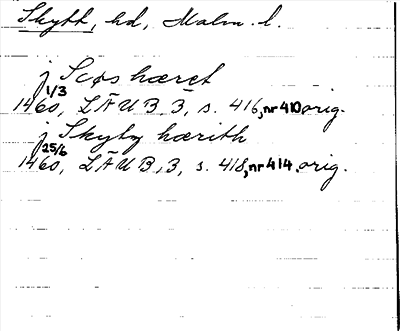 Skytt, hd, Malm. l.
j Scøs hæret
1460, 1/3 LÄUB, 3, s. 416, nr 410 orig.
j Skyby hærith
1460, 25/6 LÄUB, 3, s. 418, nr 414. orig.